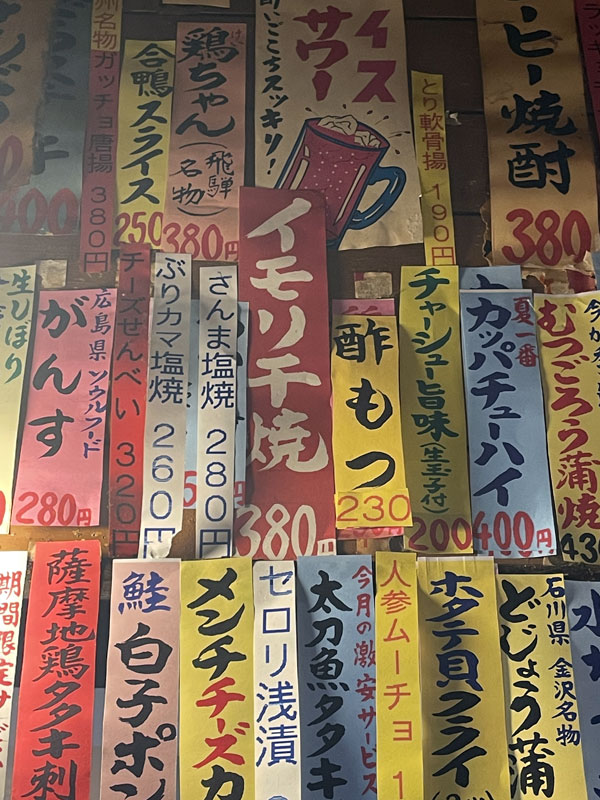 州名物 ガッチョ唐揚 380円
合鴨スライス
250
鶏ちゃん
(飛騨名物)
380円
ごこちスッキリ!
イス
サワー
とり軟骨揚 190円
ーヒー焼酎
380
生しぼり
広島県 ソウルフード
がんす
280円
チーズせんべい 320円
ぶりカマ塩焼 260円
さんま塩焼 280円
イモリ干焼
380円
酢もつ
230
チャーシュー旨味
(生玉子付)
200
夏一番
カッパチューハイ
400円
むつごろう蒲焼
430
期間限定サービス
薩摩地鶏タタキ刺
鮭白子ポン
メンチチーズカ
セロリ浅漬
今月の激安サービス
太刀魚タタキ
人参ムーチョ 1
ホタテ貝フライ
石川県 金沢名物
どじょう蒲